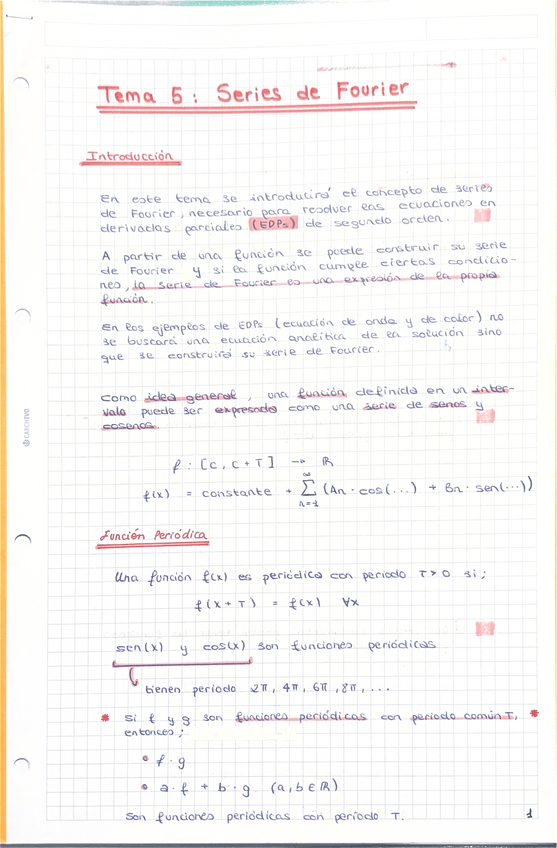 Tema 5: Series de Fourier
Introducción
En este tema se introducirá el concepto de series
de Fourier, necesario para resolver las ecuaciones en
derivadas parciales (EDPs) de segundo orden.
A partir de una función se puede construir su serie
de Fourier y si la función cumple ciertas condicio-
nes, la serie de Fourier es una expresión de la propia
función.
En los ejemplos de EDPs (ecuación de onda y de calor) no
se buscará una ecuación analítica de la solución sino
que se construirá su serie de Fourier.
como idea general, una función definida en un inter-
valo puede ser expresada como una serie de senos y
cosenos.
f: [c, c+T] → ℝ
f(x) = constante + ∑_{n=1}^{∞} (An · cos(...) + Bn · sen(...))
Función Periódica
Una función f(x) es periódica con periodo T>0 si;
f(x+T) = f(x) ∀x
sen(x) y cos(x) son funciones periódicas
tienen periodo 2π, 4π, 6π, 8π, ...
* si f y g son funciones periódicas con periodo común T, *
entonces;
• f·g
• a·f + b·g (a,b∈ℝ)
Son funciones periódicas con periodo T.
1
CARCHIVO